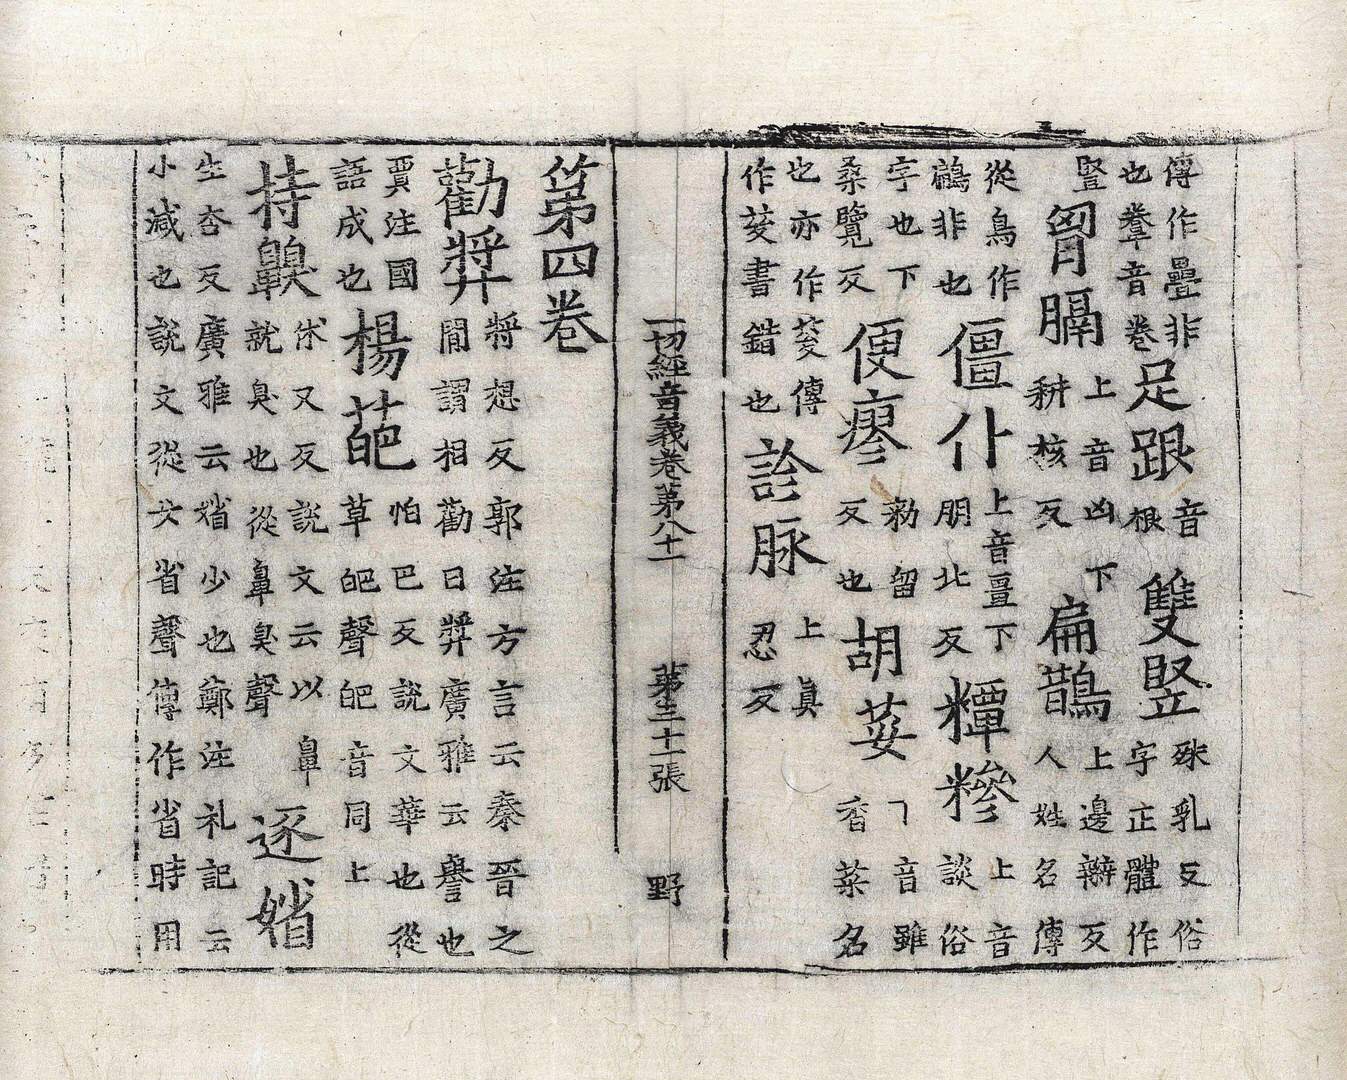 傳作疊非也鞶音卷足跟音根雙竪殊乳反俗字正體作
竪胷膈上音凶下耕核反扁鵲上邊辮反人姓名傳
從鳥作鶘非也僵仆上音薑下朋北反糫糝上音談俗
字也下桑覽反便廖勑留反也胡荽下音雖香菜名
也亦作荾傳作荽書錯也診脉上真忍反
一切經音義卷第八十一 第三十一張 野
第四卷
勸獎將想反郭注方言云秦晉之間謂相勸曰獎廣雅云譽也
賈注國語成也楊葩怕巴反説文華也從草皅聲皅音同上
持齅休又反説文云以鼻就臭也從鼻臭聲逐媘
生杏反廣雅云媘少也鄭注礼記云小減也説文從女省聲傳作省時用